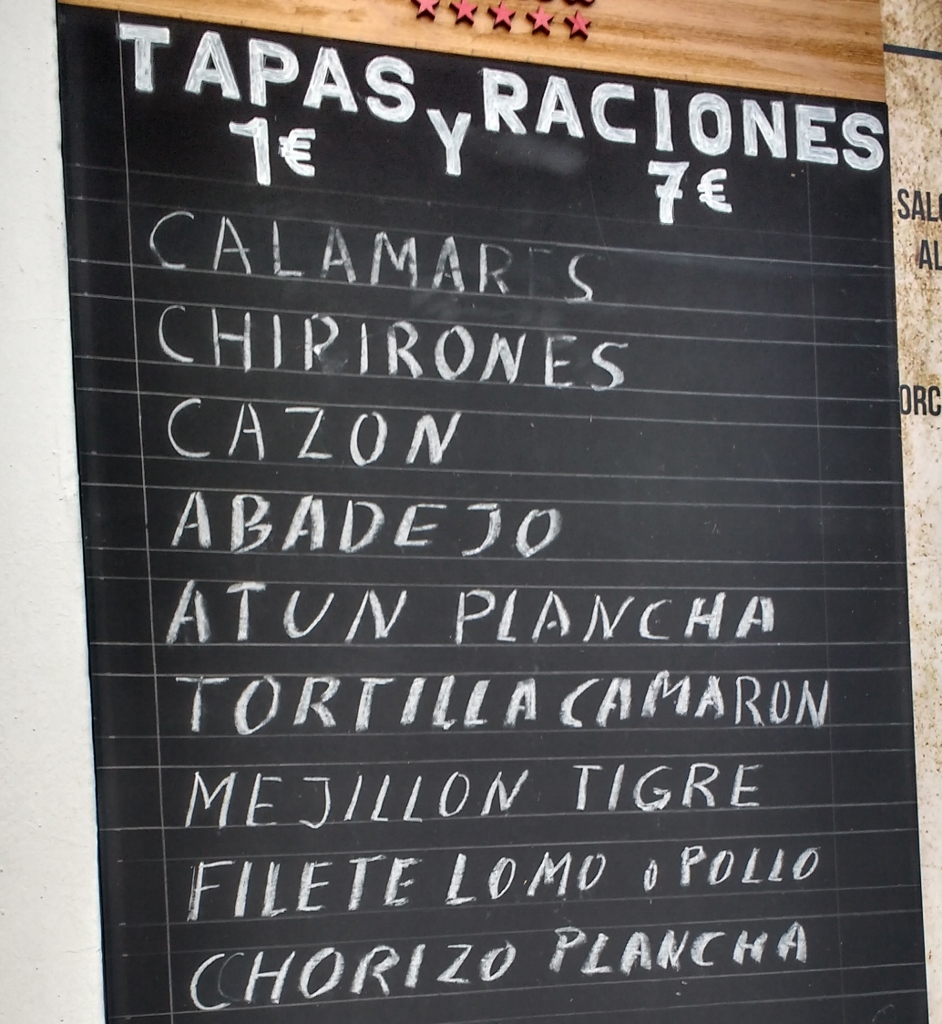 TAPAS Y RACIONES
1€ 7€
CALAMARES
CHIPIRONES
CAZON
ABADEJO
ATUN PLANCHA
TORTILLA CAMARON
MEJILLON TIGRE
FILETE LOMO o POLLO
CHORIZO PLANCHA